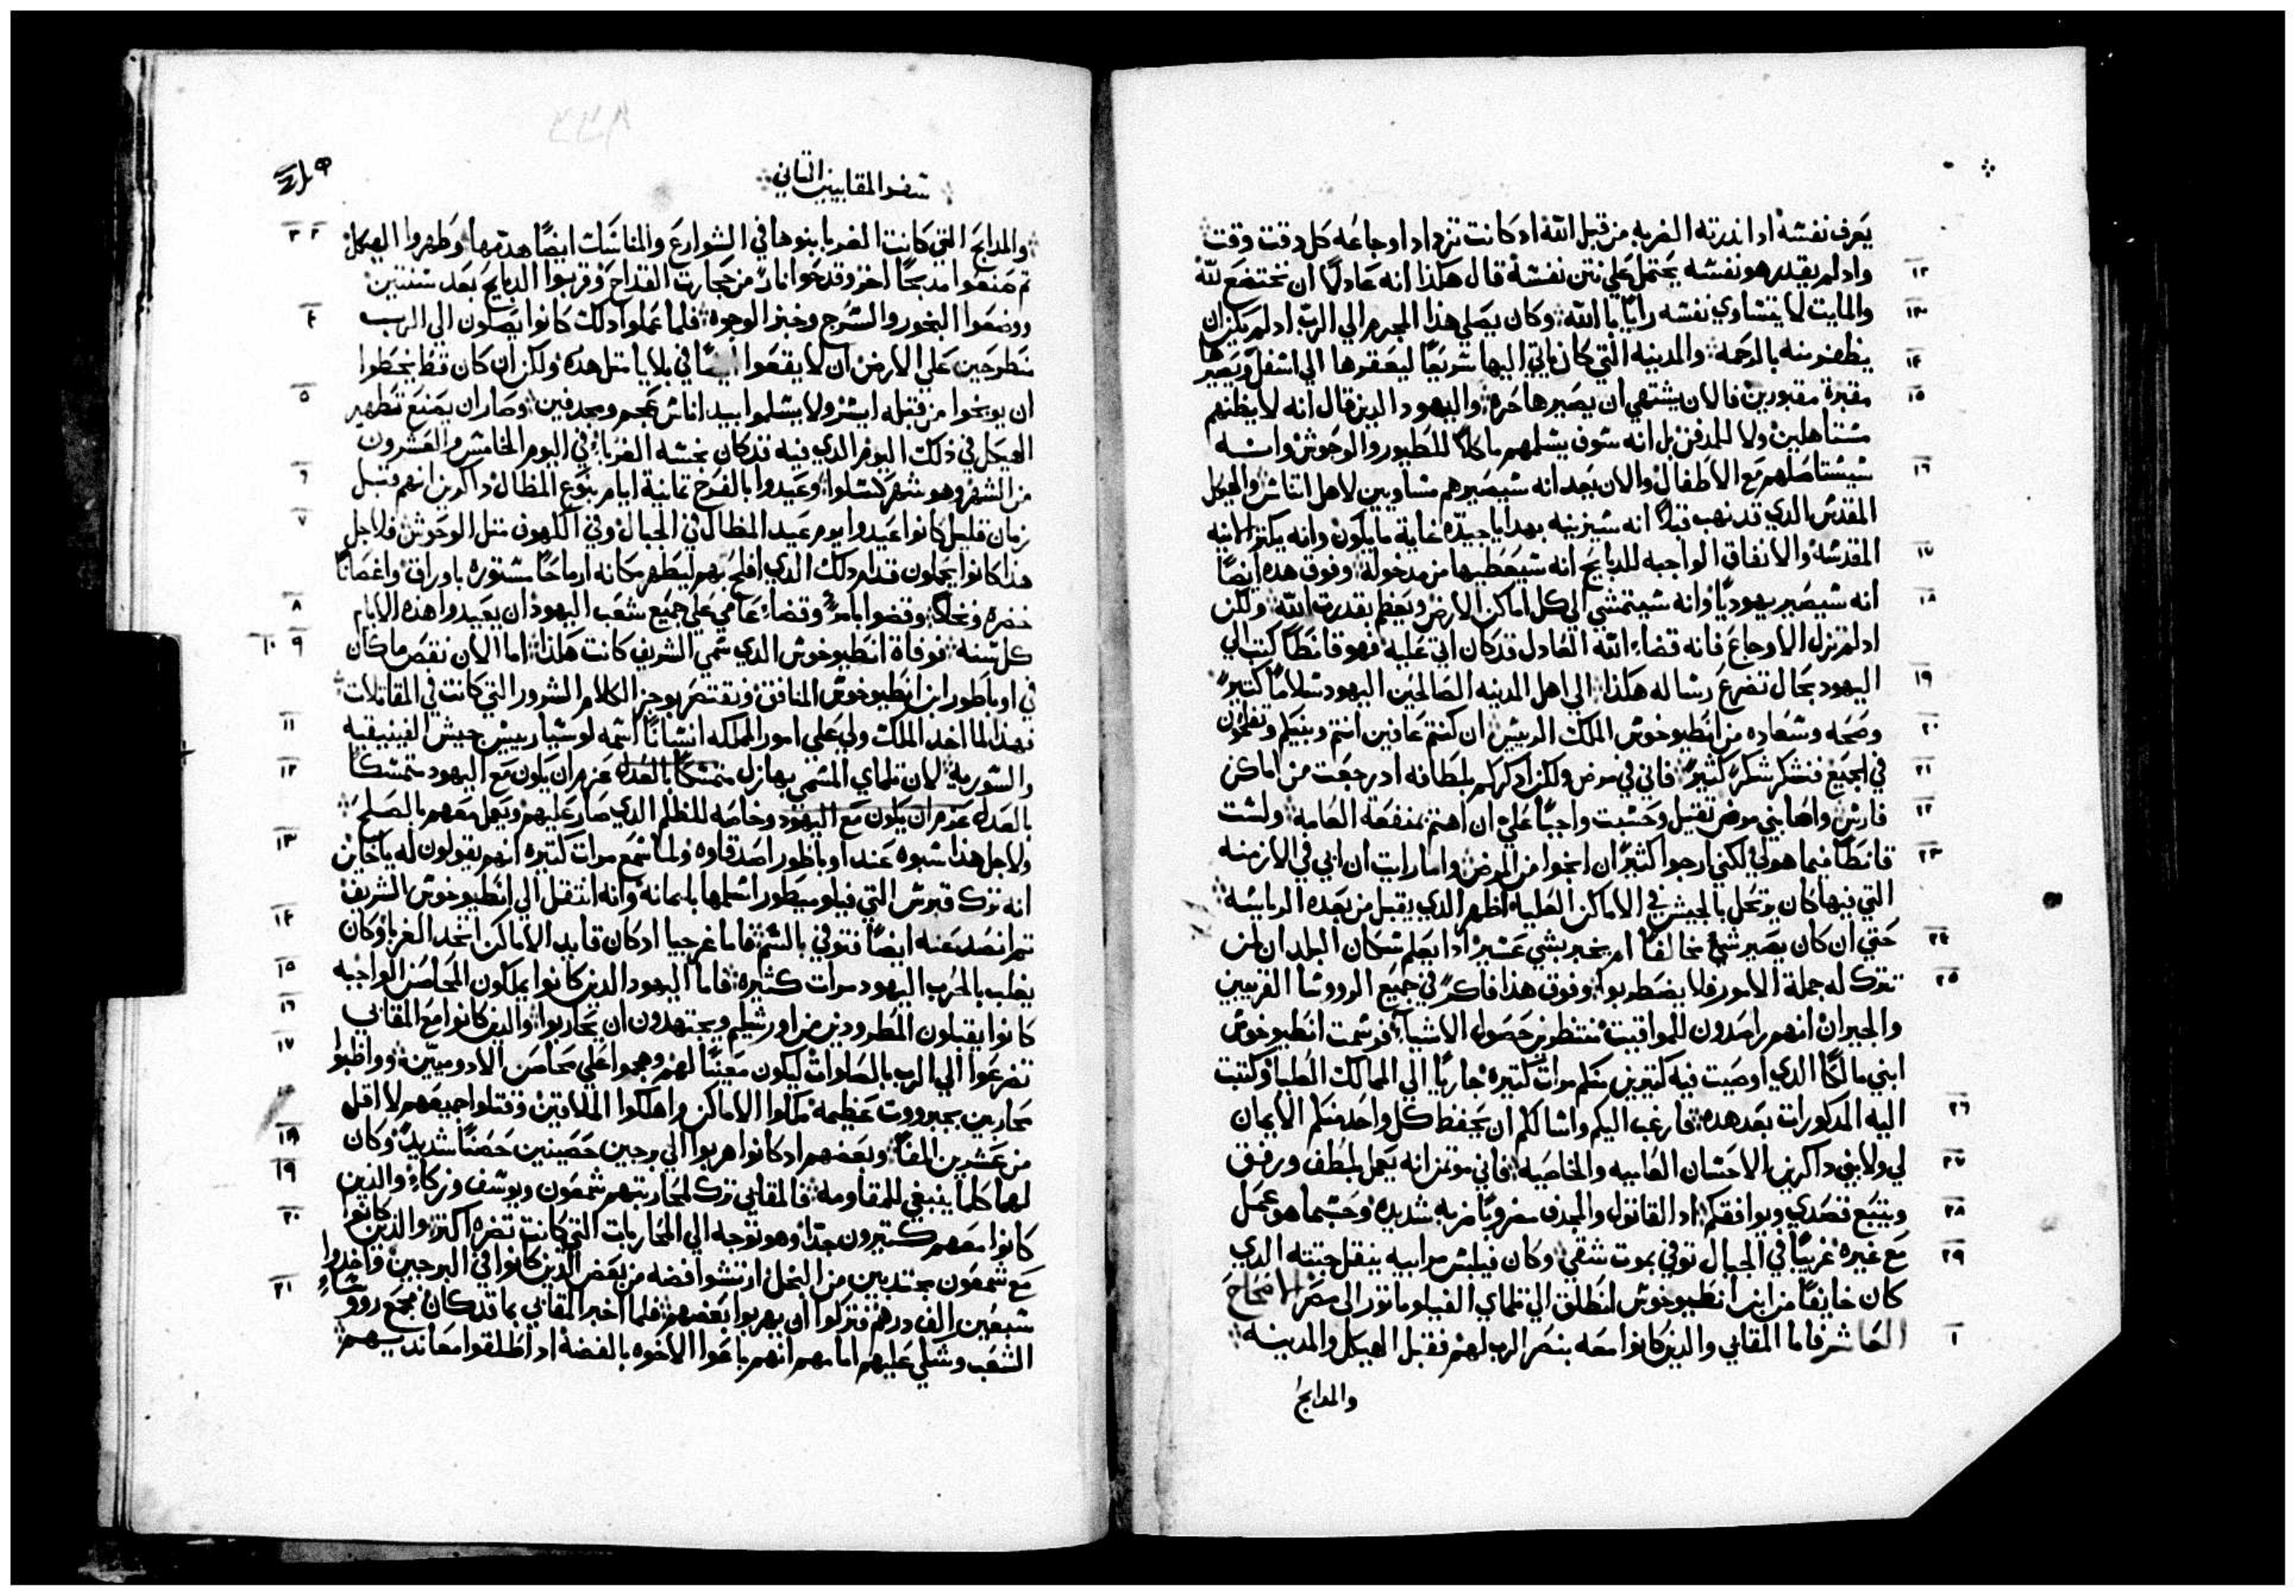 يعرف نفسه اد اندرته الضربه من قبل الله اد كانت تزداد اوجاعه كل وقت وقت
١٢ واد لم يقدر هو نفسه يحتمل على نتن نفسه قال هكذا انه عادلاً ان نختضع لله
١٣ والمايت لا يتساوي نفسه راياً بالله وكان يصلي هذا المجرم الي الرب اد لم يكن ان
١٤ يظفر منه بالرحمه والمدينه التي كان ياتي اليها سريعاً ليعقرها الي اسفل ويصيرها
١٥ مقبرة مقبورين فالان يشتهي ان يصيرها حره واليهود الدين قال انه لا يظنهم
مستاهلين ولا للدفن بل انه سوف يسلمهم ماكلاً للطيور والوحوش وانه
١٦ سيستاصلهم مع الاطفال والان يجد انه سيصيرهم مساويين لاهل اتناس والهيكل
المقدس الدي قد نهب قبلاً انه سيزينه بهدايا جيده غاية ما يكون وانه يكثر الانيه
١٧ المقدسه والانفاق الواجبه للدبايح انه سيعطيها من مدخوله وفوق هده ايضاً
١٨ انه سيصير يهودياً وانه سيتمشي الي كل اماكن الارض ويعظم بقدرت الله ولكن
اد لم تزل الاوجاع فانه قضاء الله العادل قد كان اتي عليه فهو قانطاً كتب الي
١٩ اليهود بحال تضرع رساله هكذا الي اهل المدينه الصالحين اليهود سلاماً كثيراً
٢٠ وصحه وسعاده من انطيوخوس الملك الرييس ان كنتم عافين انتم وبنيكم وتفلحون
٢١ في الجميع فنشكر شكراً كثيراً فاني في مرض ولكن ادكركم بلطافه اد رجعت من اماكن
٢٢ فارس واصابني مرض تقيل وحسبت واجباً علي ان اهتم بمنفعة العامه ولست
٢٣ قانطاً فيما هو لي لكني ارجوا كثيراً ان انجوا من المرض واما رايت ان ابي في الازمنه
التي فيها كان يرتحل بالجيش في الاماكن العليا اظهر الدي يقبل من بعده الرياسه
٢٤ حتي ان كان يصير شي مخالفاً ام يخبر بشي عسير ادا يعلم سكان البلدان لمن
٢٥ تترك له جملة الامور فلا يضطربوا وفوق هذا فاكر في جميع الرووسا القريبين
والجيران انهم راصدون للمواقيت منتظرين حصول الاشيا فرسمت انطيوخوس
ابني مالكاً الدي اوصيت فيه كتيرين منكم مرات كتيره جارياً الي الممالك العليا وكتبت
٢٦ اليه المدكورات بعد هده فارغب اليكم واسالكم ان يحفظ كل واحد منكم الايمان
٢٧ لي ولابني داكرين الاحسان العاميه والخاصيه فاني موتمن انه يعمل بلطف ورفق
٢٨ ويتبع قصدي ويوافقكم اد القاتول والمجدف مضروباً ضربه شديده وحسبما هو عمل
٢٩ مع غيره غريباً في الجبال توفي بموت شقي وكان فيلبس مرابيه ينقل جتته الدي
كان خايفاً من ابن انطيوخوس انطلق الي تلماي الفيلوماتور الي مصر الاصحاح
١ العاشر فاما المقابي والدين كانوا معه بنصر الرب لهم فقبل الهيكل والمدينه
والمدابح
سفر المقابيين التاني
٢ ٣ والمدابح التي كانت الغربا بنوها في الشوارع والمناسات ايضاً هدمها وطهروا الهيكل
تم صنعوا مدبحاً اخر وقدحوا ناراً من حجارت القداح وقربوا الدبايح بعد سنتين
٤ ووضعوا البخور والسرج وخبز الوجوه فلما عملوا دلك كانوا يصلون الي الرب
منطرحين علي الارض ان لا يقعوا ايضاً في بلايا متل هده ولكن ان كان قط يخطوا
٥ ان يوبخوا من قبله ايسر ولا يسلموا بيد اناس عجم ومجدفين وصار ان يصنع تطهير
الهيكل في دلك اليوم الدي فيه قد كان نجسه الغربا في اليوم الخامس والعشرون
٦ من الشهر وهو شهر كسلوا وعيدوا بالفرح تمانية ايام بنوع المظال داكرين انهم قبل
٧ زمان قليل كانوا عيدوا يوم عيد المظال في الجبال وفي الكهوف متل الوحوش فلاجل
هذا كانوا يحملون قدام دلك الدي افلح بهم ليطهر مكانه ارماحاً مستوره باوراق واغصاناً
٨ خضره ونخلاً وقضوا بامر وقضاء عامي علي جميع شعب اليهود ان يعيدوا هده الايام
٩ ١٠ كل سنه فوفاة انطيوخوس الدي سمي الشريف كانت هكذا اما الان نقص ما كان
في اوباطور ابن انطيوخوس المنافق ونقتصر بوجز الكلام الشرور التي كانت في المقاتلات
١١ فهذا لما اخد الملك ولي علي امور المملكه انساناً اسمه لوسيا رييس جيش الفينيقيه
١٢ والسوريه لان تلماي المسمي بهازل متمسكاً بالعدل عزم ان يكون مع اليهود متمسكاً
بالعدل عزم ان يكون مع اليهود وخاصه للظلم الدي صار عليهم ويعمل معهم بالصلح
١٣ ولاجل هذا سبوه عند اوباطور اصدقاوه ولما سمع مرات كتيره انهم يقولون له يا خاين
انه ترك قبرس التي فيلوميطور اسلمها بامانه وانه انتقل الي انطيوخوس الشريف
١٤ تم انصد عنه ايضاً فتوفي بالسم فاما غرجيا اد كان قايد الاماكن اتخد الغربا وكان
١٥ يغلب بالحرب اليهود مرات كثيره فاما اليهود الدين كانوا يملكون المحاصن الواجبه
١٦ كانوا يقبلون المطرودين من اورشليم ويجتهدون ان يحاربوا والدين كانوا مع المقابي
١٧ تضرعوا الي الرب بالصلوات ليكون معيناً لهم وهجموا علي محاصن الادوميين وواظبوا
محاربين بجبرووت عظيمه تملكوا الاماكن واهلكوا الملاقين وقتلوا جميعهم لا اقل
١٨ من عشرين الفاً وبعضهم اد كانوا هربوا الي برجين حصينين حصناً شديداً وكان
١٩ لهما كلما ينبغي للمقاومه فالمقابي ترك لمحاربتهم شمعون ويوسف وزكا والدين
٢٠ كانوا معهم كتيرون جداً وهو توجه الي المحاربات التي كانت تضره اكتر والدين كانوا
مع شمعون مجتدبين من البخل ارتشوا فضه من بعض الدين كانوا في البرجين واخدوا
٢١ سبعين الف درهم فتركوا ان يهربوا بعضهم فلما اخبر المقابي بما قد كان مجمع رووساء
الشعب وشكي عليهم امامهم انهم باعوا الاخوه بالفضه اد اطلقوا معانديهم